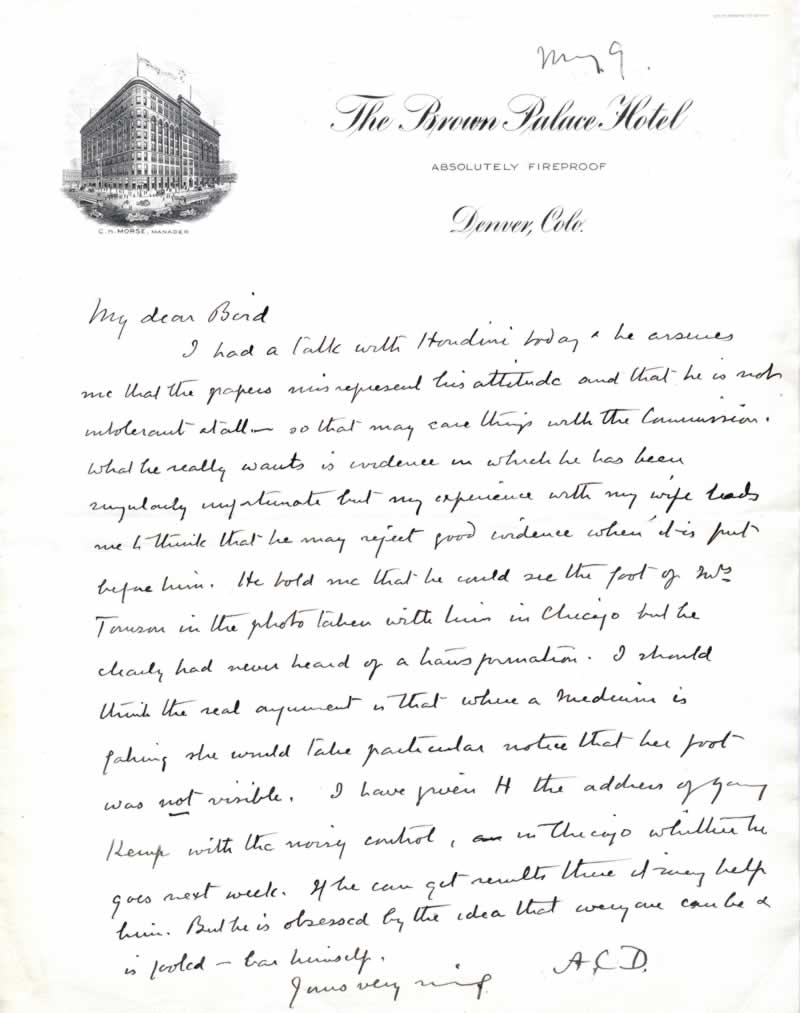 May 9.
The Brown Palace Hotel
ABSOLUTELY FIREPROOF
Denver, Colo.
C. H. MORSE, MANAGER
My dear Bird
I had a talk with Houdini today & he assures
me that the papers misrepresent his attitude and that he is not
intolerant at all — so that may ease things with the Commission.
What he really wants is evidence in which he has been
singularly unfortunate but my experience with my wife leads
me to think that he may reject good evidence when it is put
before him. He told me that he could see the foot of Mrs
Tomson in the photo taken with him in Chicago but he
clearly had never heard of a transformation. I should
think the real argument is that where a Medium is
faking she would take particular notice that her foot
was not visible. I have given H the address of young
Kemp with the noisy control, in Chicago whither he
goes next week. If he can get results there it may help
him. But he is obsessed by the idea that everyone can be &
is fooled — bar himself.
Yours very
A.C.D.